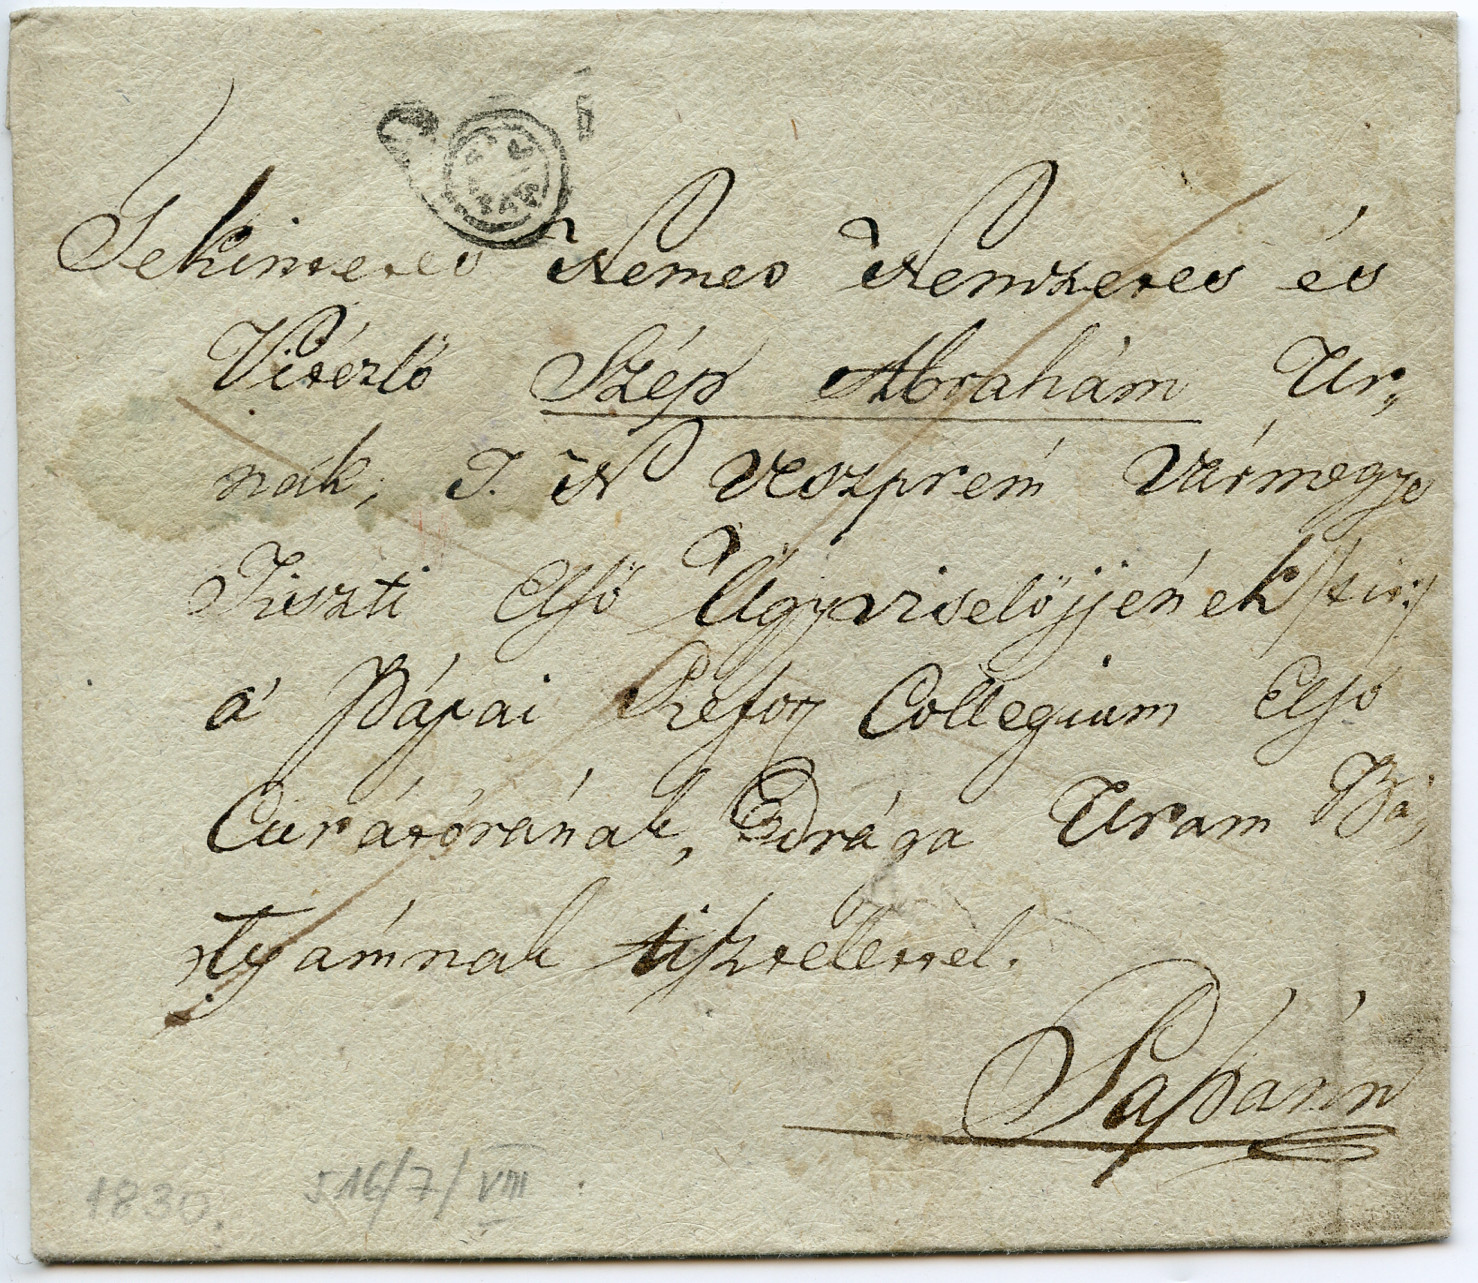 Tekintetes Nemes Nemzetes és
Vitézlő Szép Abrahám Ur„
nak, T. N Veszprém Vármegye
Tiszti Első Ügyviselőjjének /: tit :/
a' Pápai Refor Collegium Első
Curátórának, Drága Uram Bá„
tyámnak tisztelettel.
Pápánn
1830. 516/7/VIII